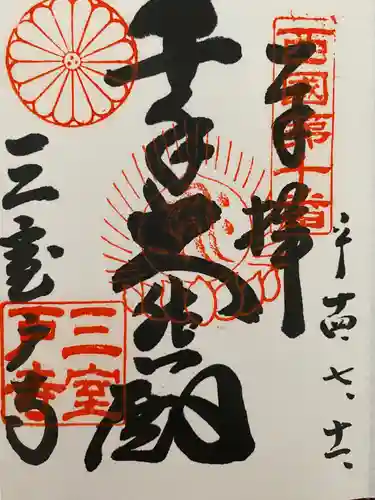 平十四、七、十一、
奉拝
西國第十番
千手大悲殿
三室戸寺
三室戸寺